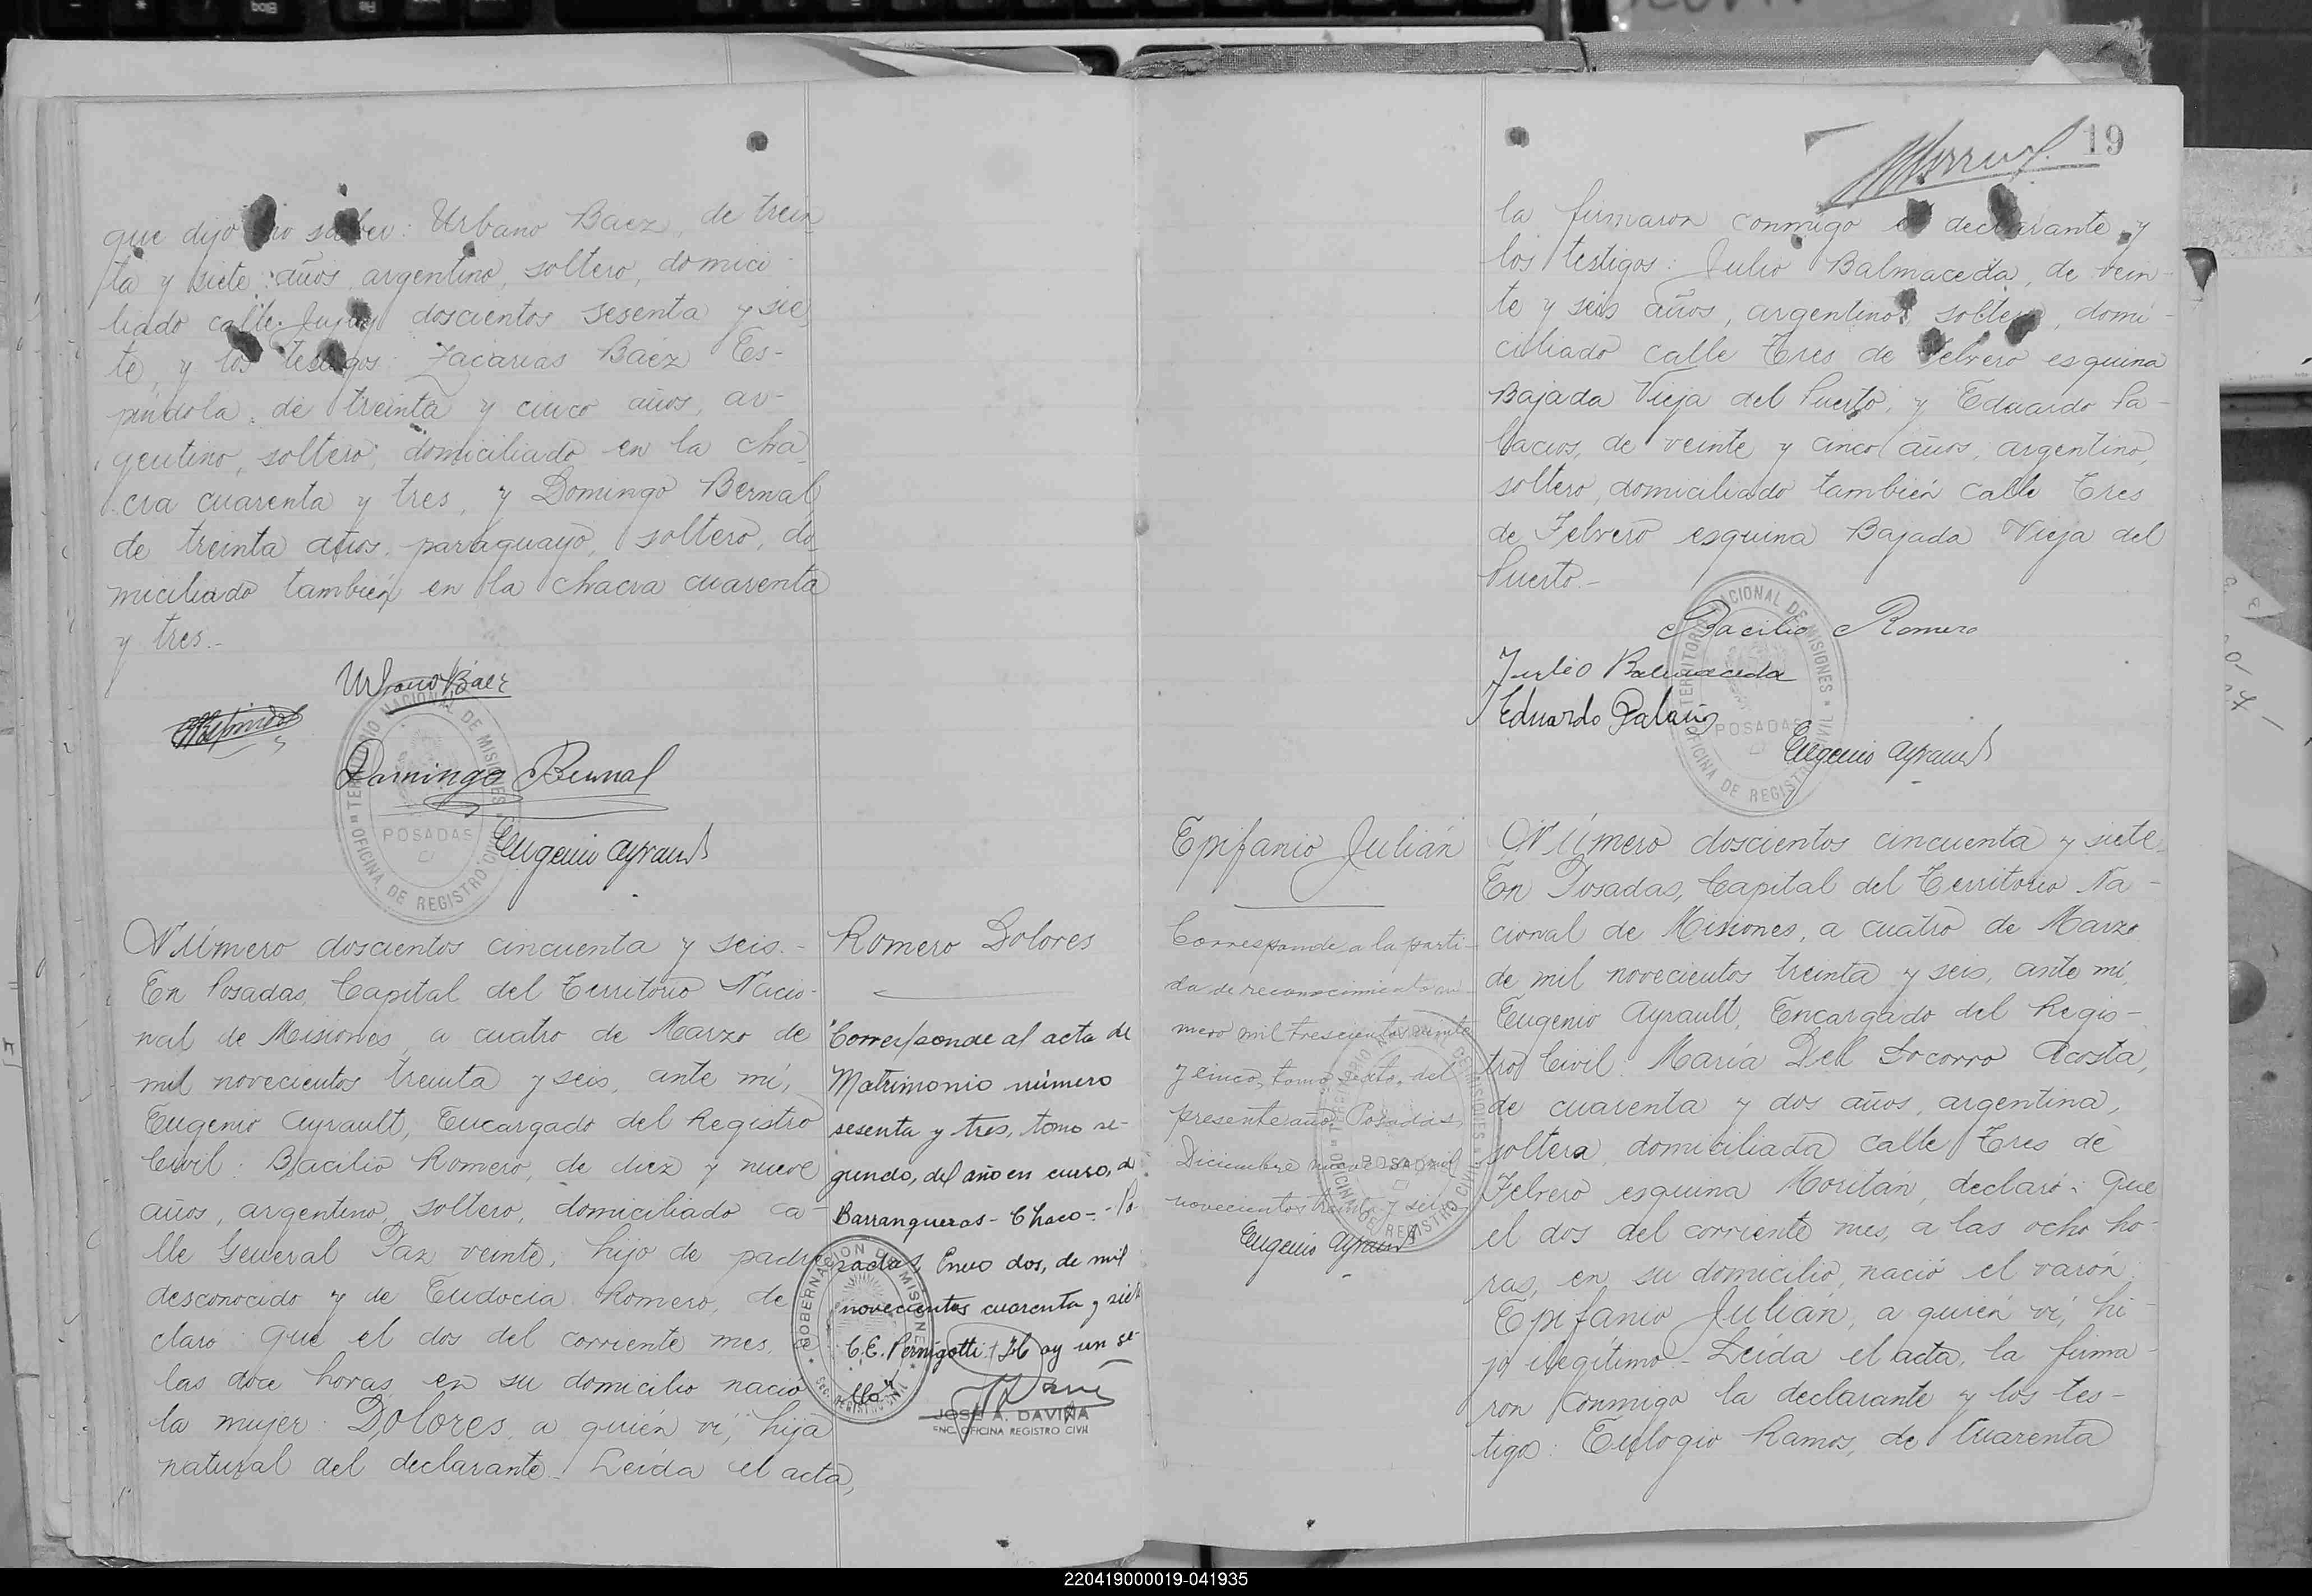 que dijo no saber: Urbano Baez, de trein
ta y siete años, argentino, soltero, domici
liado calle Jujuy doscientos sesenta y sie
te, y los testigos: Zacarias Baez Es-
píndola, de treinta y cinco años, ar-
gentino, soltero, domiciliado en la cha
cra cuarenta y tres, y Domingo Bernal
de treinta años, paraguayo, soltero, do
miciliado también en la chacra cuarenta
y tres.-
Urbano Báez
Domingo Bernal
Eugenio Ayrault
TERRITORIO NACIONAL DE MISIONES
POSADAS
OFICINA DE REGISTRO CIVIL
Número doscientos cincuenta y seis.-
En Posadas, Capital del Territorio Nacio-
nal de Misiones, a cuatro de Marzo de
mil novecientos treinta y seis, ante mí,
Eugenio Ayrault, Encargado del Registro
Civil: Bacilio Romero, de diez y nueve
años, argentino, soltero, domiciliado ca-
lle General Paz veinte, hijo de padre
desconocido y de Eudocia Romero, de
claró: Que el dos del corriente mes, a
las doce horas, en su domicilio nació
la mujer: Dolores, a quién ví, hija
natural del declarante.- Leída el acta,
Romero Dolores
"Corresponde al acta de
Matrimonio número
sesenta y tres, tomo se-
gundo, del año en curso, de
Barranqueras-Chaco-.-Po-
sadas, Enero dos, de mil
novecientos cuarenta y siete
C.E. Pernigotti. Hay un se-
llo"
GOBERNACION DE MISIONES
JOSE A. DAVIÑA
ENC. OFICINA REGISTRO CIVIL
19
la firmaron conmigo el declarante y
los testigos: Julio Balmaceda, de vein-
te y seis años, argentino, soltero, domi-
ciliado calle Tres de Febrero esquina
Bajada Vieja del Puerto, y Eduardo Pa-
lacios, de veinte y cinco años, argentino,
soltero, domiciliado también calle Tres
de Febrero esquina Bajada Vieja del
Puerto.-
Bacilio Romero
Julio Balmaceda
Eduardo Palacios
Eugenio Ayrault
TERRITORIO NACIONAL DE MISIONES
POSADAS
OFICINA DE REGISTRO CIVIL
Epifanio Julián
Corresponde a la parti-
da de reconocimiento nú-
mero mil trescientos veinte
y cinco, tomo sexto, del
presente año. Posadas,
Diciembre nueve de mil
novecientos treinta y seis.
Eugenio Ayrault
TERRITORIO NACIONAL DE MISIONES
POSADAS
OFICINA DE REGISTRO CIVIL
Número doscientos cincuenta y siete.
En Posadas, Capital del Territorio Na-
cional de Misiones, a cuatro de Marzo
de mil novecientos treinta y seis, ante mí,
Eugenio Ayrault, Encargado del Regis-
tro Civil: María Del Socorro Acosta,
de cuarenta y dos años, argentina,
soltera, domiciliada calle Tres de
Febrero esquina Moritán, declaró: Que
el dos del corriente mes, a las ocho ho-
ras, en su domicilio, nació el varón:
Epifanio Julián, a quién ví, hi-
jo ilegítimo.- Leída el acta, la firma-
ron conmigo la declarante y los tes-
tigos: Eulogio Ramos, de cuarenta
220419000019-041935